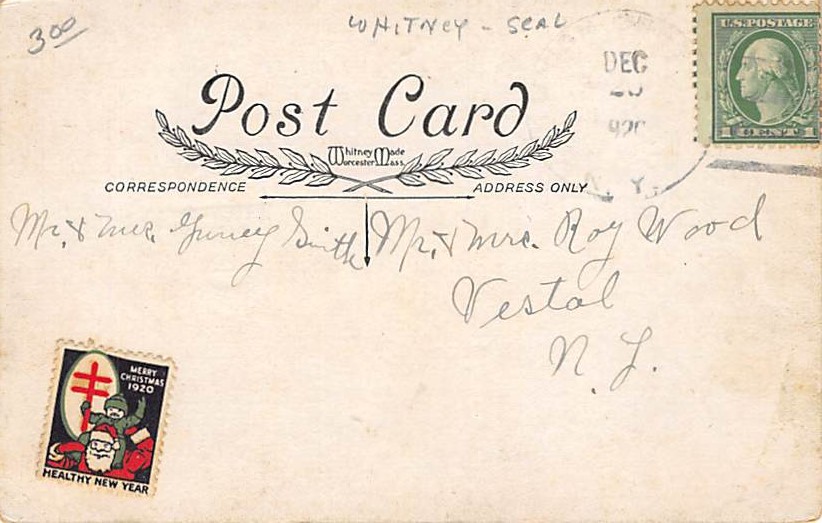 3.00
WHITNEY - SEAL
U.S. POSTAGE
1 CENT 1
DEC
920
N. Y.
Post Card
Whitney Made
Worcester Mass.
CORRESPONDENCE
ADDRESS ONLY
Mr. & Mrs. Smith
Mr. & Mrs. Roy Wood
Vestal
N. Y.
MERRY
CHRISTMAS
1920
HEALTHY NEW YEAR